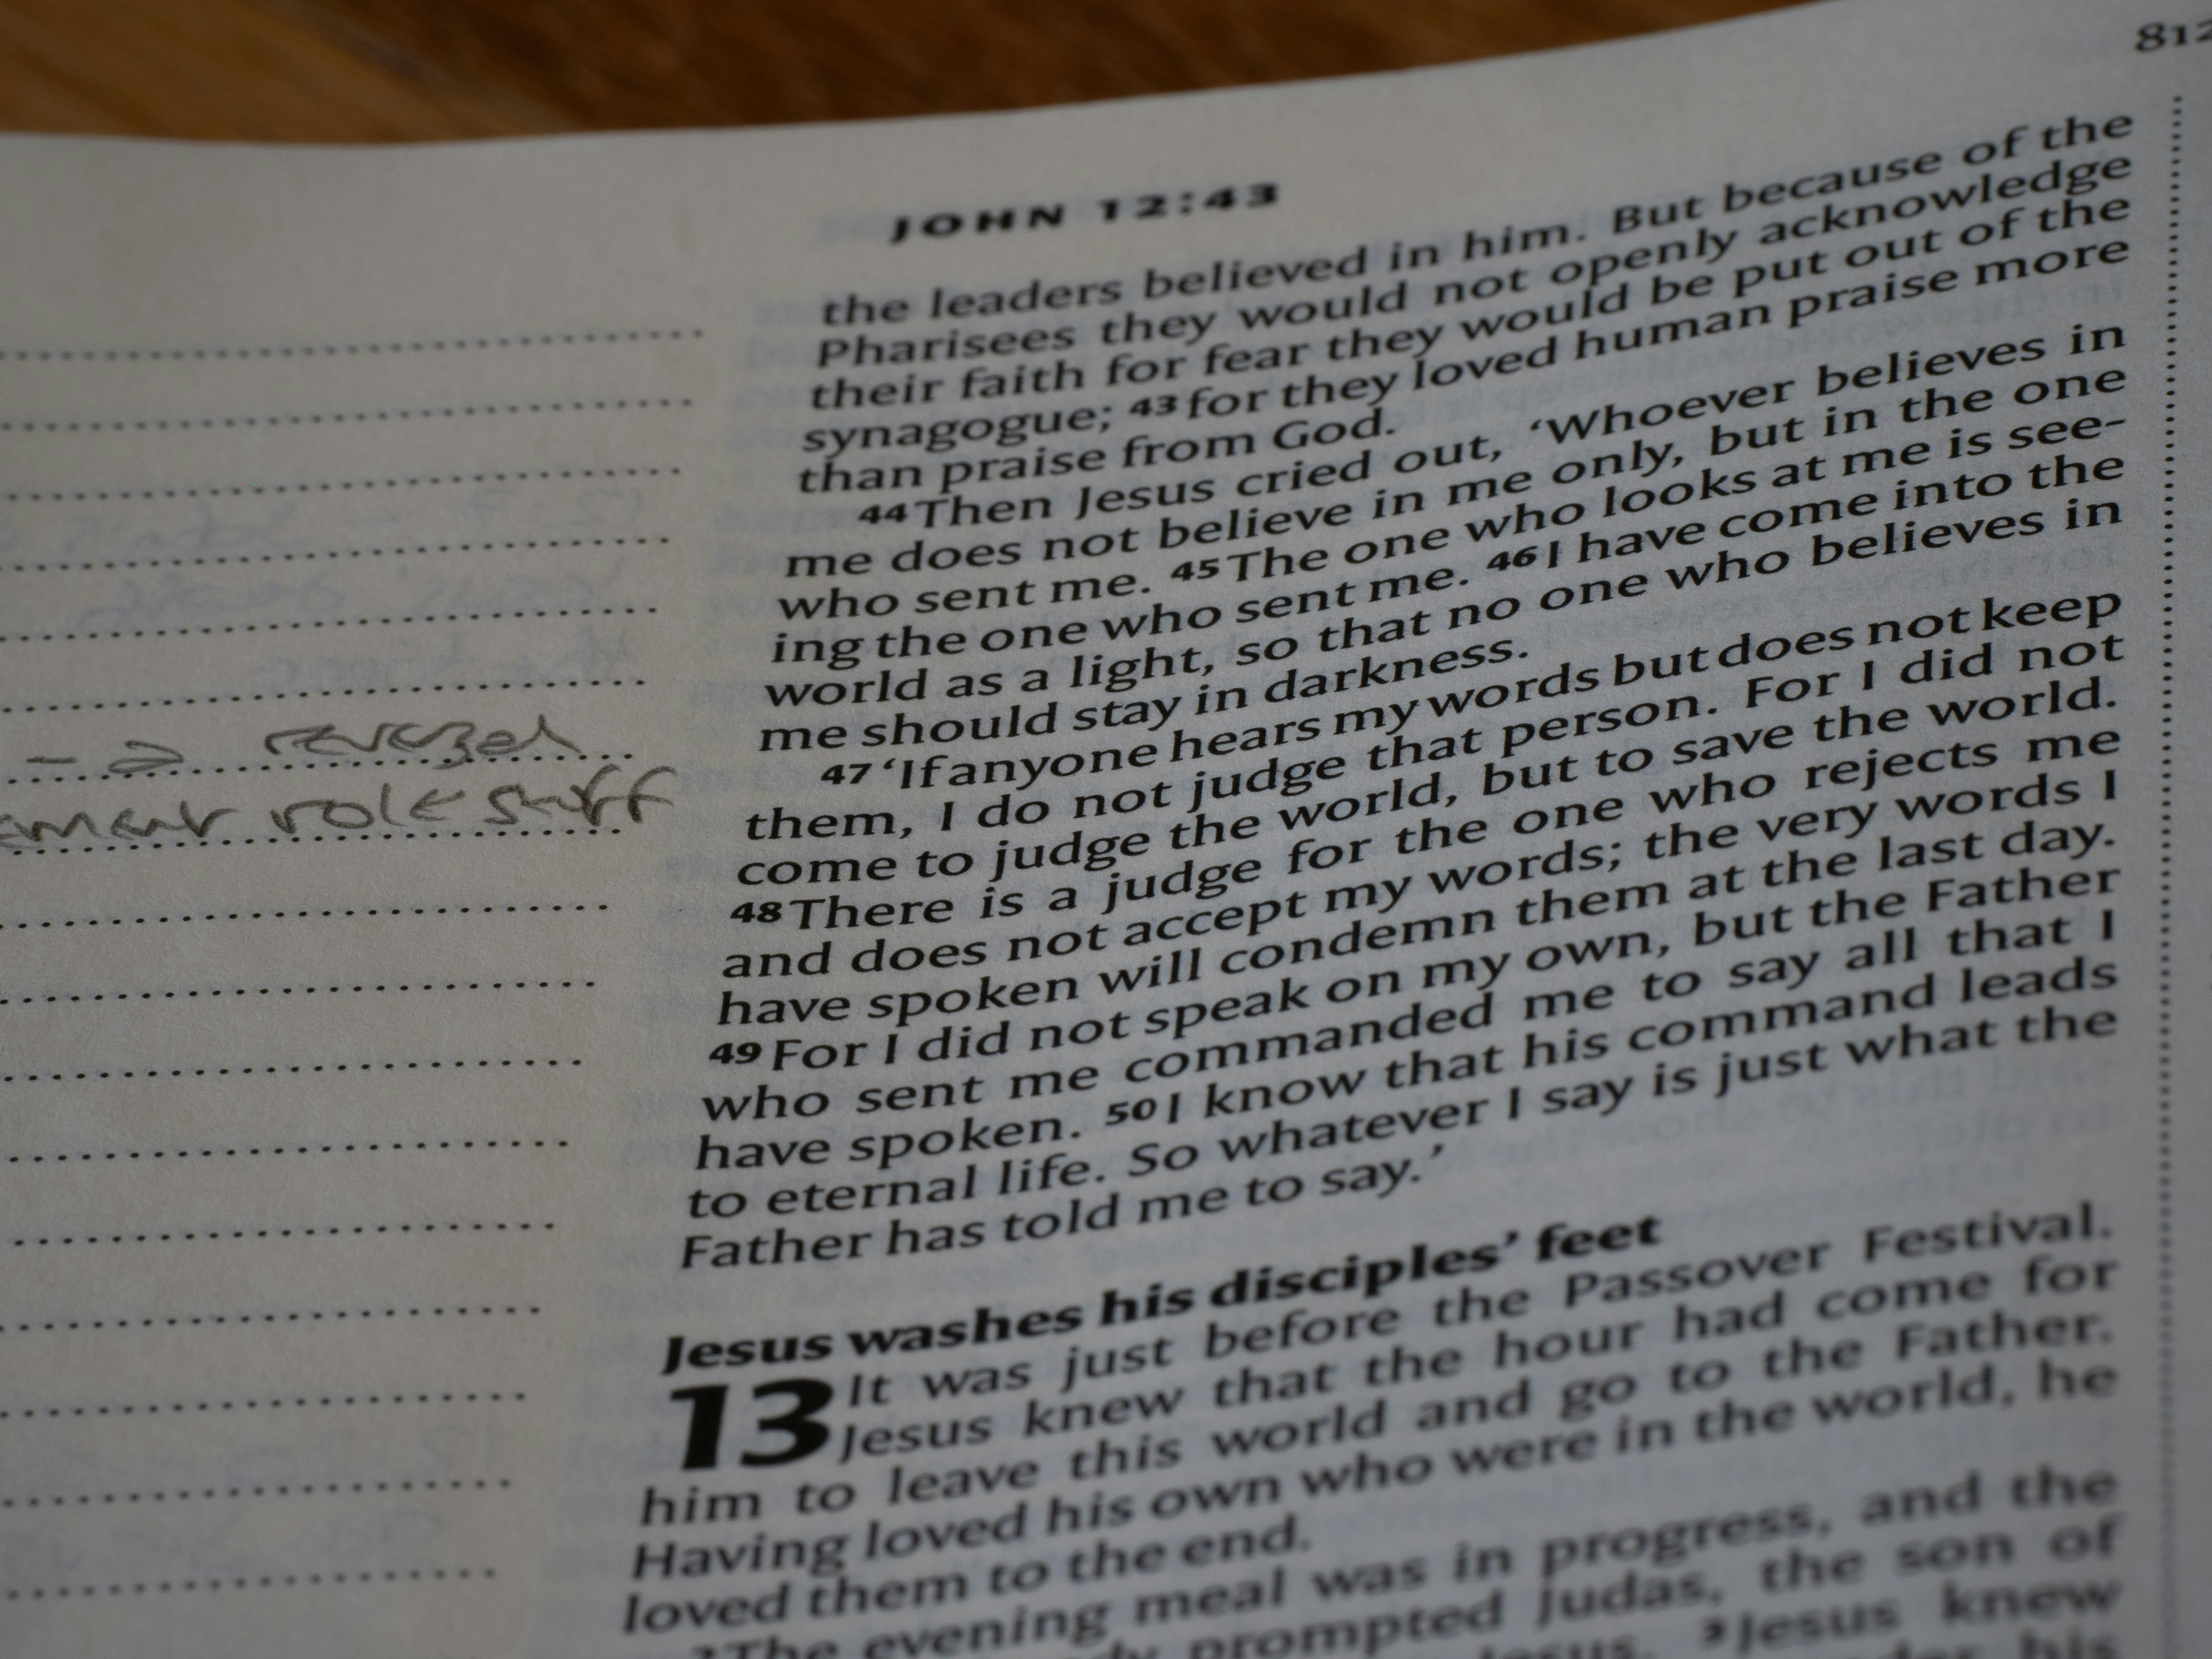 812
JOHN 12:43
the leaders believed in him. But because of the
Pharisees they would not openly acknowledge
their faith for fear they would be put out of the
synagogue; 43 for they loved human praise more
than praise from God.
44 Then Jesus cried out, ‘Whoever believes in
me does not believe in me only, but in the one
who sent me. 45 The one who looks at me is see-
ing the one who sent me. 46 I have come into the
world as a light, so that no one who believes in
me should stay in darkness.
47 ‘If anyone hears my words but does not keep
them, I do not judge that person. For I did not
come to judge the world, but to save the world.
48 There is a judge for the one who rejects me
and does not accept my words; the very words I
have spoken will condemn them at the last day.
49 For I did not speak on my own, but the Father
who sent me commanded me to say all that I
have spoken. 50 I know that his command leads
to eternal life. So whatever I say is just what the
Father has told me to say.’
Jesus washes his disciples’ feet
13 It was just before the Passover Festival.
Jesus knew that the hour had come for
him to leave this world and go to the Father.
Having loved his own who were in the world, he
loved them to the end.
2 The evening meal was in progress, and the
prompted Judas, the son of
Jesus. 3 Jesus knew
his
role stuff